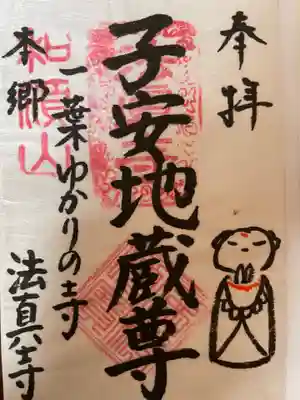 奉拝
子安地蔵尊
和順山
一葉ゆかりの寺
本郷
法真寺